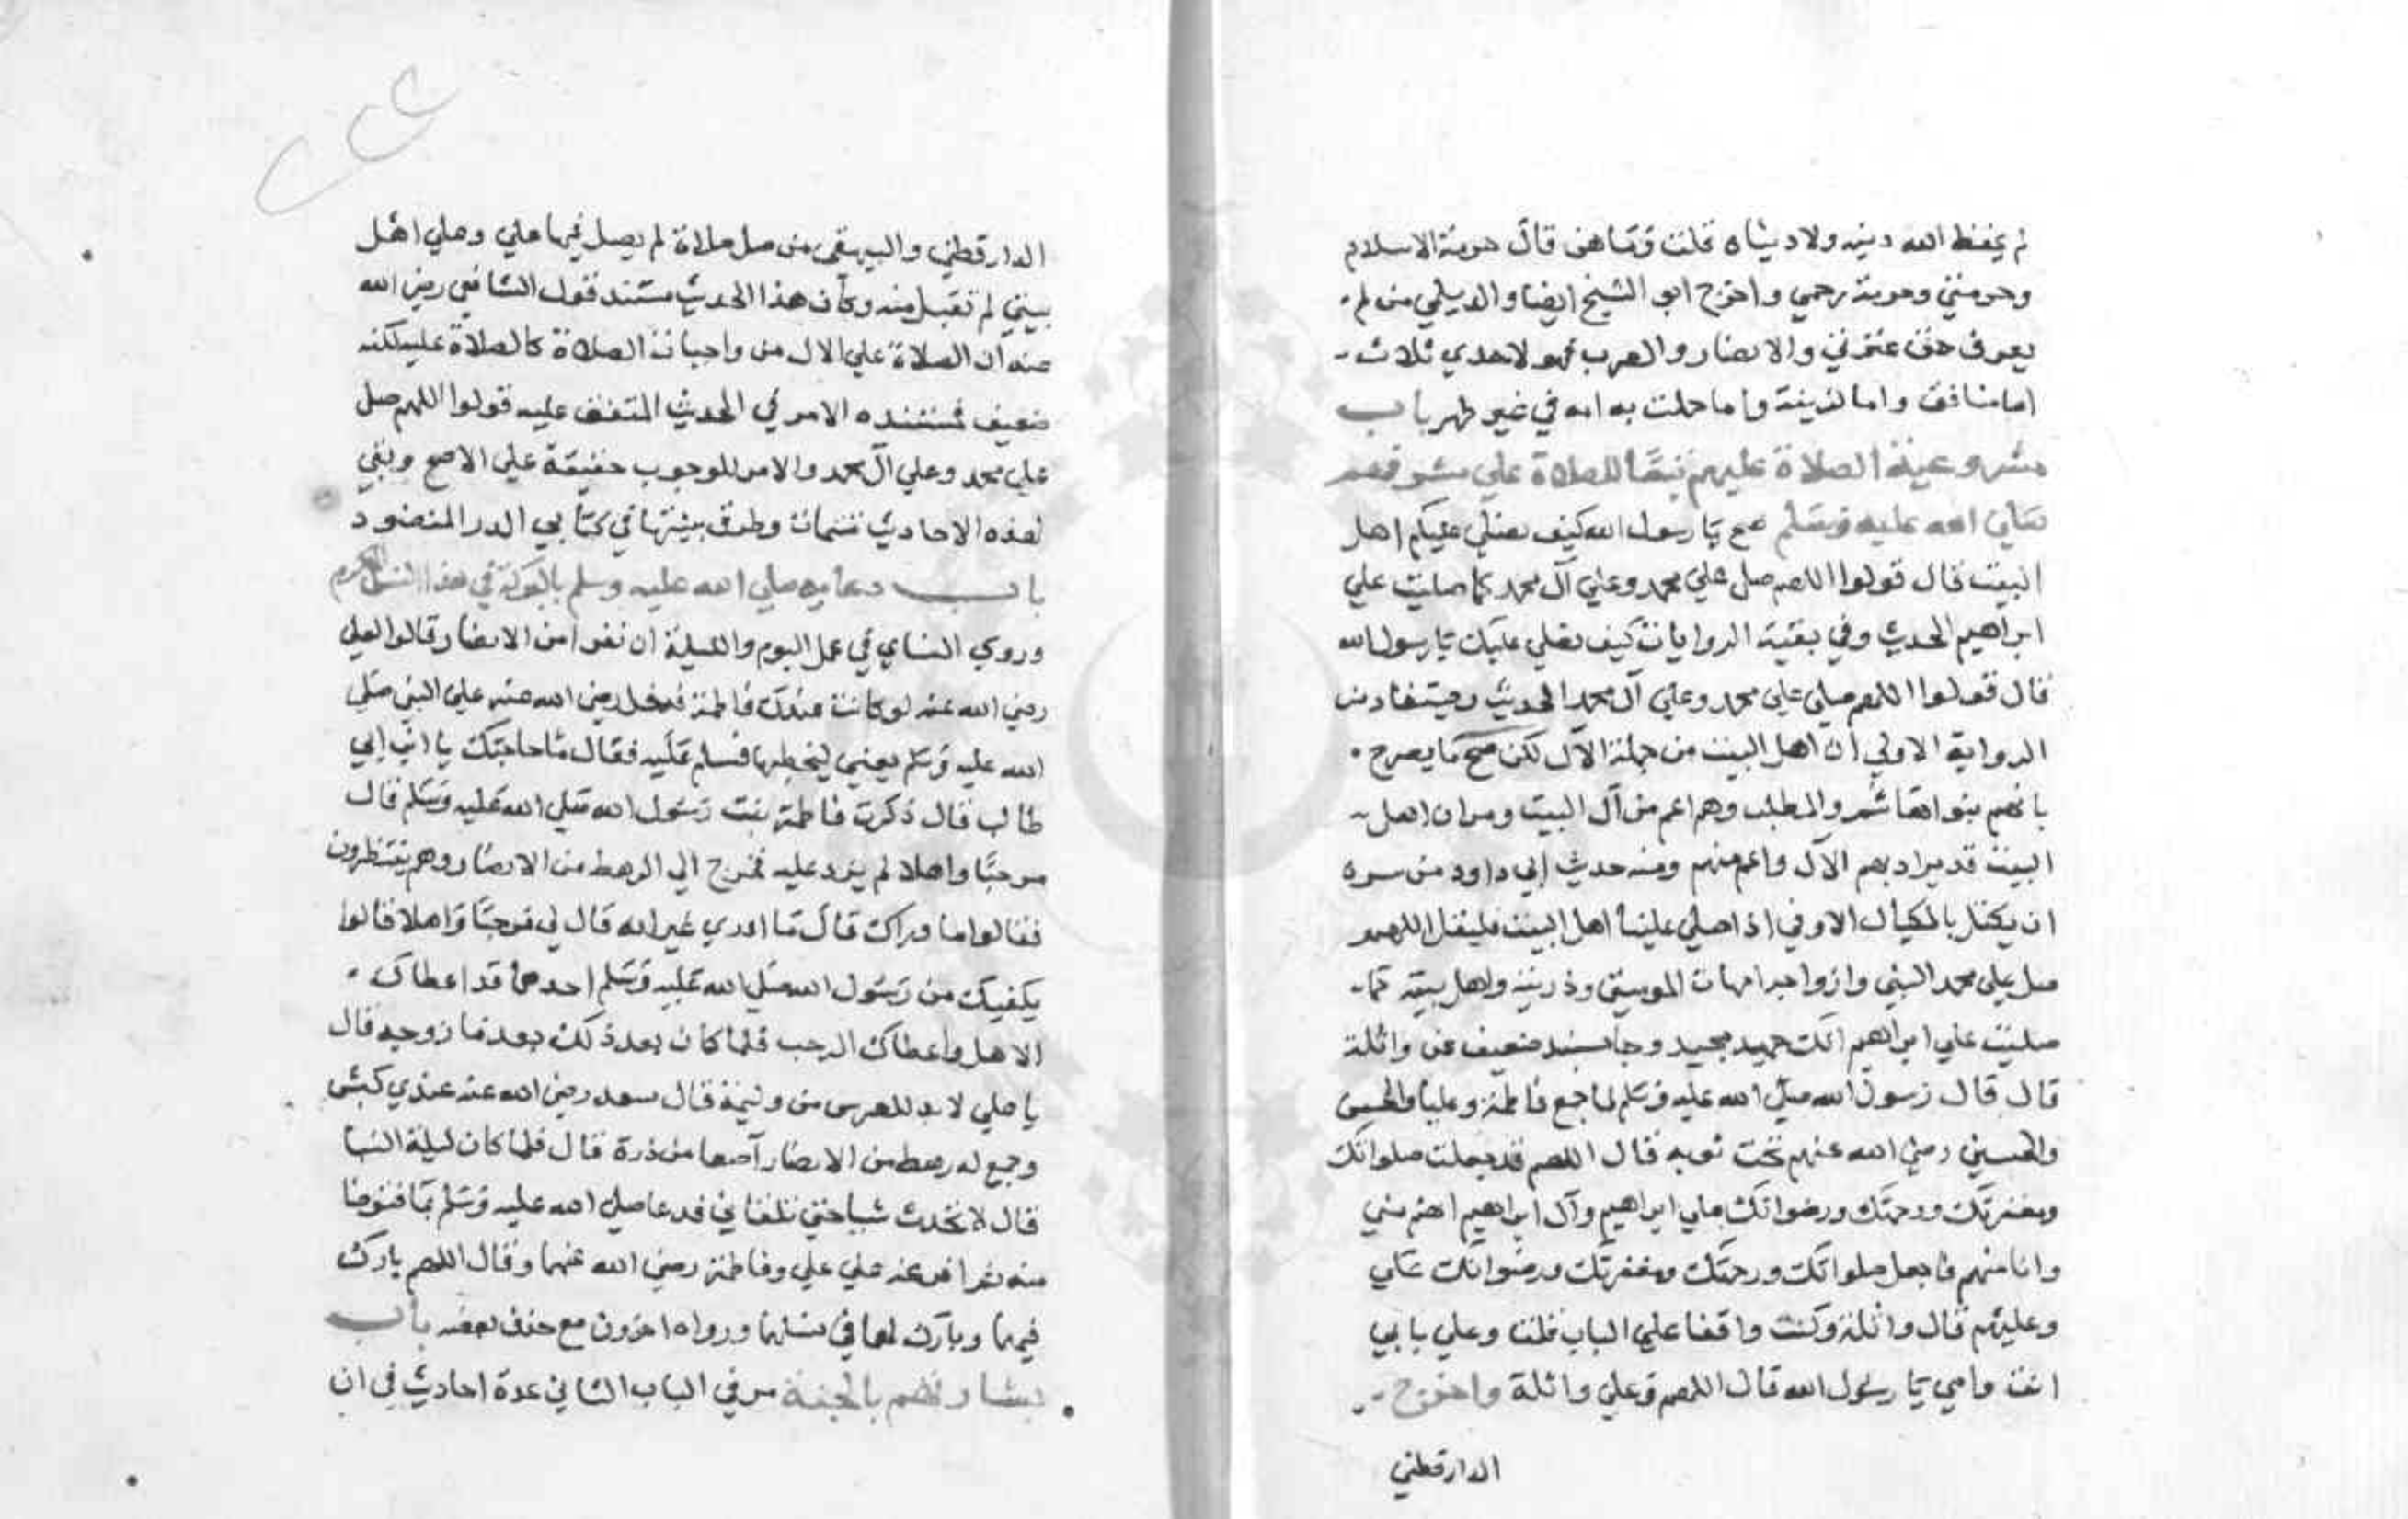 لم يحفظ الله دينه ولا دنياه قلت وما هن قال حرمة الاسلام
وحرمتي وحرمة رحمي واخرج ابو الشيخ ايضا والديلمي من لم
يعرف حق عترتي والانصار والعرب فهو لاحدي ثلاث
اما منافق واما لزنية واما حملت به امه في غير طهر باب
مشروعية الصلاة عليهم تبعا للصلاة علي مشرفهم
صلي الله عليه وسلم صح يا رسول الله كيف نصلي عليكم اهل
البيت قال قولوا اللهم صل علي محمد وعلي آل محمد كما صليت علي
ابراهيم الحديث وفي بقية الروايات كيف نصلي عليك يا رسول الله
قال قولوا اللهم صلي علي محمد وعلي آل محمد الحديث ويستفاد من
الرواية الاولي ان اهل البيت من جملة الآل لكن صح ما يصرح
بانهم بنوا هاشم والمطلب وهم اعم من آل البيت ومر ان اهل
البيت قد يراد بهم الآل واعم منهم ومنه حديث ابي داود من سره
ان يكتل بالمكيال الاوفي اذا صلي علينا اهل البيت فليقل اللهم
صل علي محمد النبي وازواجه امهات المومنين وذريته واهل بيته كما
صليت علي ابراهيم انك حميد مجيد وجا بسند ضعيف عن واثلة
قال قال رسول الله صلي الله عليه وسلم لما جمع فاطمة وعليا والحسن
والحسين رضي الله عنهم تحت ثوبه قال اللهم قد جعلت صلواتك
ومغفرتك ورحمتك ورضوانك علي ابراهيم وآل ابراهيم انهم مني
وانا منهم فاجعل صلواتك ورحمتك ومغفرتك ورضوانك علي
وعليهم قال واثلة وكنت واقفا علي الباب فقلت وعلي بابي
انت وامي يا رسول الله قال اللهم وعلي واثلة واخرج
الدارقطني
الدارقطني والبيهقي من صل صلاة لم يصل فيها علي وعلي اهل
بيتي لم تقبل منه وكأن هذا الحديث مستند قول الشافعي رضي الله
عنه ان الصلاة علي الال من واجبات الصلاة كالصلاة عليه لكنه
ضعيف فمستنده الامر في الحديث المتفق عليه قولوا اللهم صل
علي محمد وعلي آل محمد والامر للوجوب حقيقة علي الاصح وبقي
لهذه الاحاديث تتمات وطرق بينتها في كتابي الدر المنضود
باب دعايه صلي الله عليه وسلم بالبركة في هذا النسل الكريم
وروي النساي في عمل اليوم والليلة ان نفرا من الانصار قالوا لعلي
رضي الله عنه لو كانت عندك فاطمة فدخل رضي الله عنه علي النبي صلي
الله عليه وسلم يعني ليخطبها فسلم عليه فقال ما حاجتك يا ابن ابي
طالب قال ذكرت فاطمة بنت رسول الله صلي الله عليه وسلم قال
مرحبا واهلا لم يزد عليه فخرج الي الرهط من الانصار وهم ينتظرون
فقالوا ما وراك قال ما ادري غير انه قال لي مرحبا واهلا قالوا
يكفيك من رسول الله صلي الله عليه وسلم احدهما قد اعطاك
الاهل واعطاك الرحب فلما كان بعد ذلك بعد ما زوجه قال
يا علي لا بد للعرس من وليمة قال سعد رضي الله عنه عندي كبش
وجمع له رهط من الانصار آصعا من ذرة قال فلما كان ليلة البنا
قال لا تحدث شيا حتي تلقاني فدعا صلي الله عليه وسلم بما فتوضا
منه ثم افرغه علي علي وفاطمة رضي الله عنهما وقال اللهم بارك
فيهما وبارك لهما في نسلهما ورواه اخرون مع حذف بعضه باب
بشارتهم بالجنة مر في الباب الثاني عدة احاديث في ان